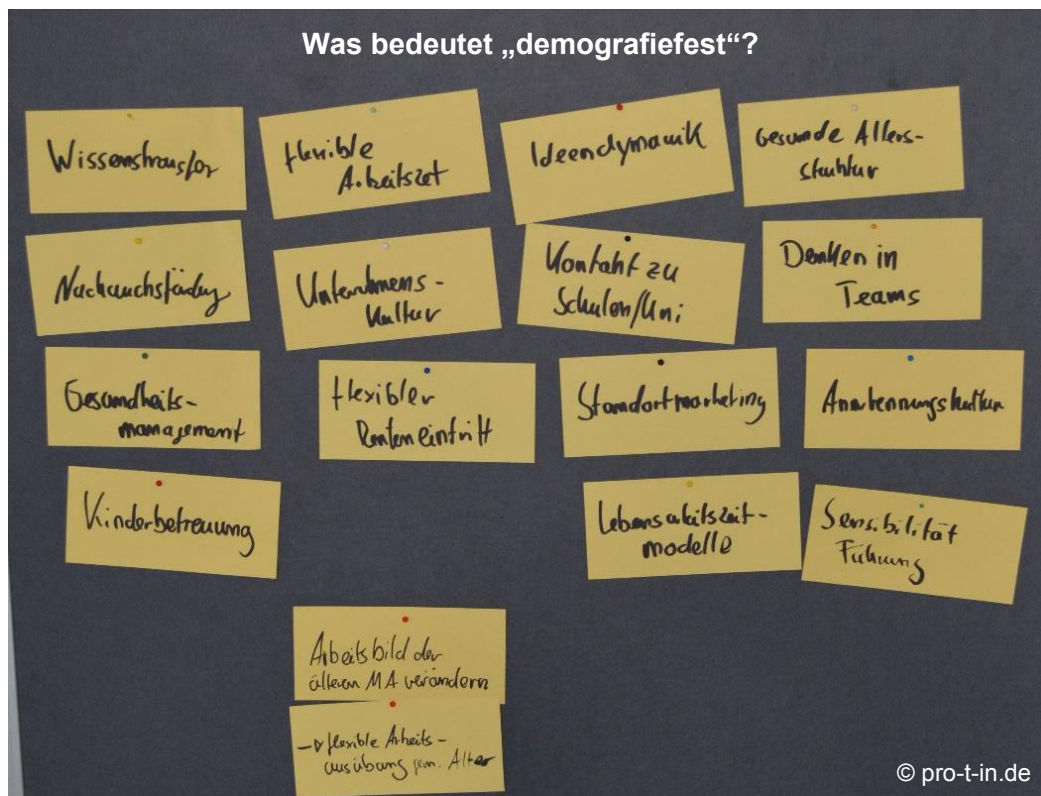 Was bedeutet „demografiefest“?
Wissenstransfer
flexible
Arbeitszeit
Ideendynamik
Gesunde Alters-
struktur
Nachwuchsförderung
Unternehmens-
Kultur
Kontakt zu
Schulen/Uni
Denken in
Teams
Gesundheits-
management
flexibler
Renteneintritt
Standortmarketing
Anerkennungskultur
Kinderbetreuung
Lebensarbeitszeit-
modelle
Sensibilität
Führung
Arbeitsbild der
älteren MA verändern
→ flexible Arbeits-
ausübung gem. Alter
© pro-t-in.de